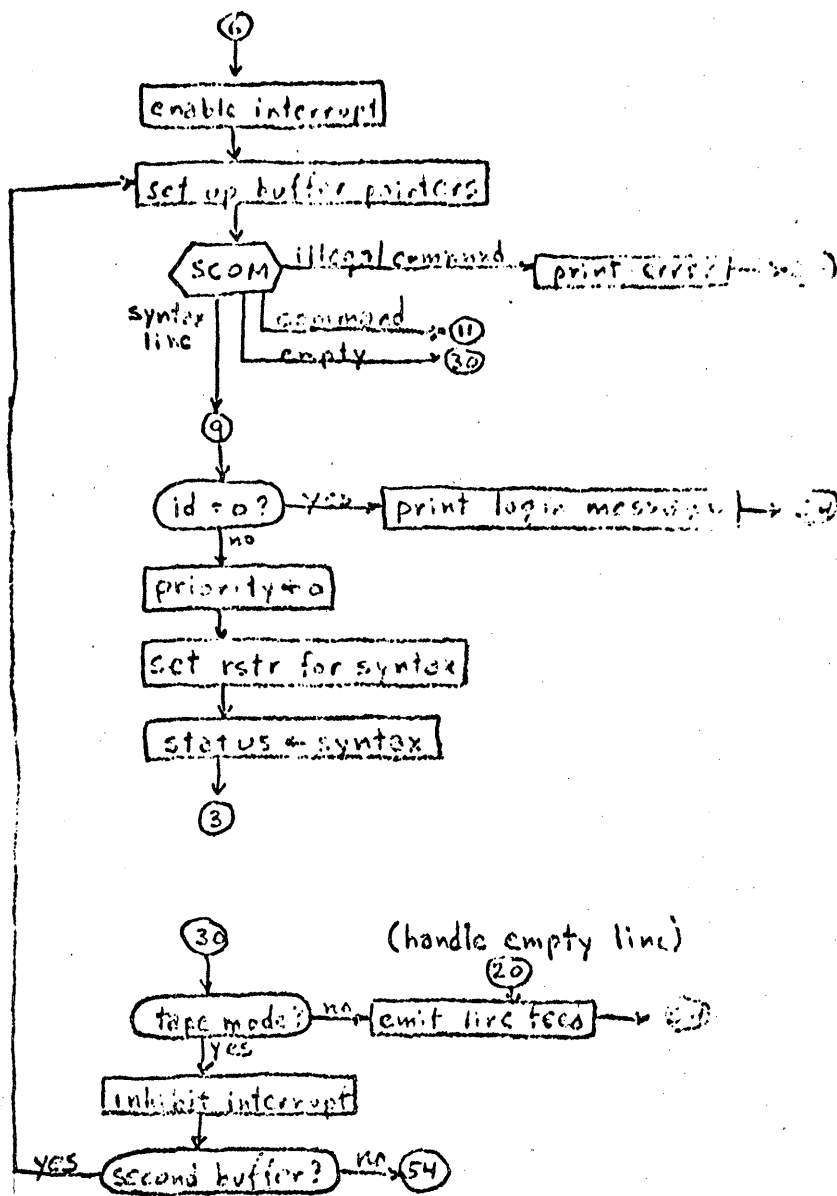 6
enable interrupt
set up buffer pointers
SCOM
illegal command
print error
syntax
line
command
11
empty
30
9
id = 0?
yes
print login message
no
priority ← 0
set rstr for syntax
status ← syntax
3
30
(handle empty line)
20
tape mode?
no
emit line feed
yes
inhibit interrupt
yes
second buffer?
no
54